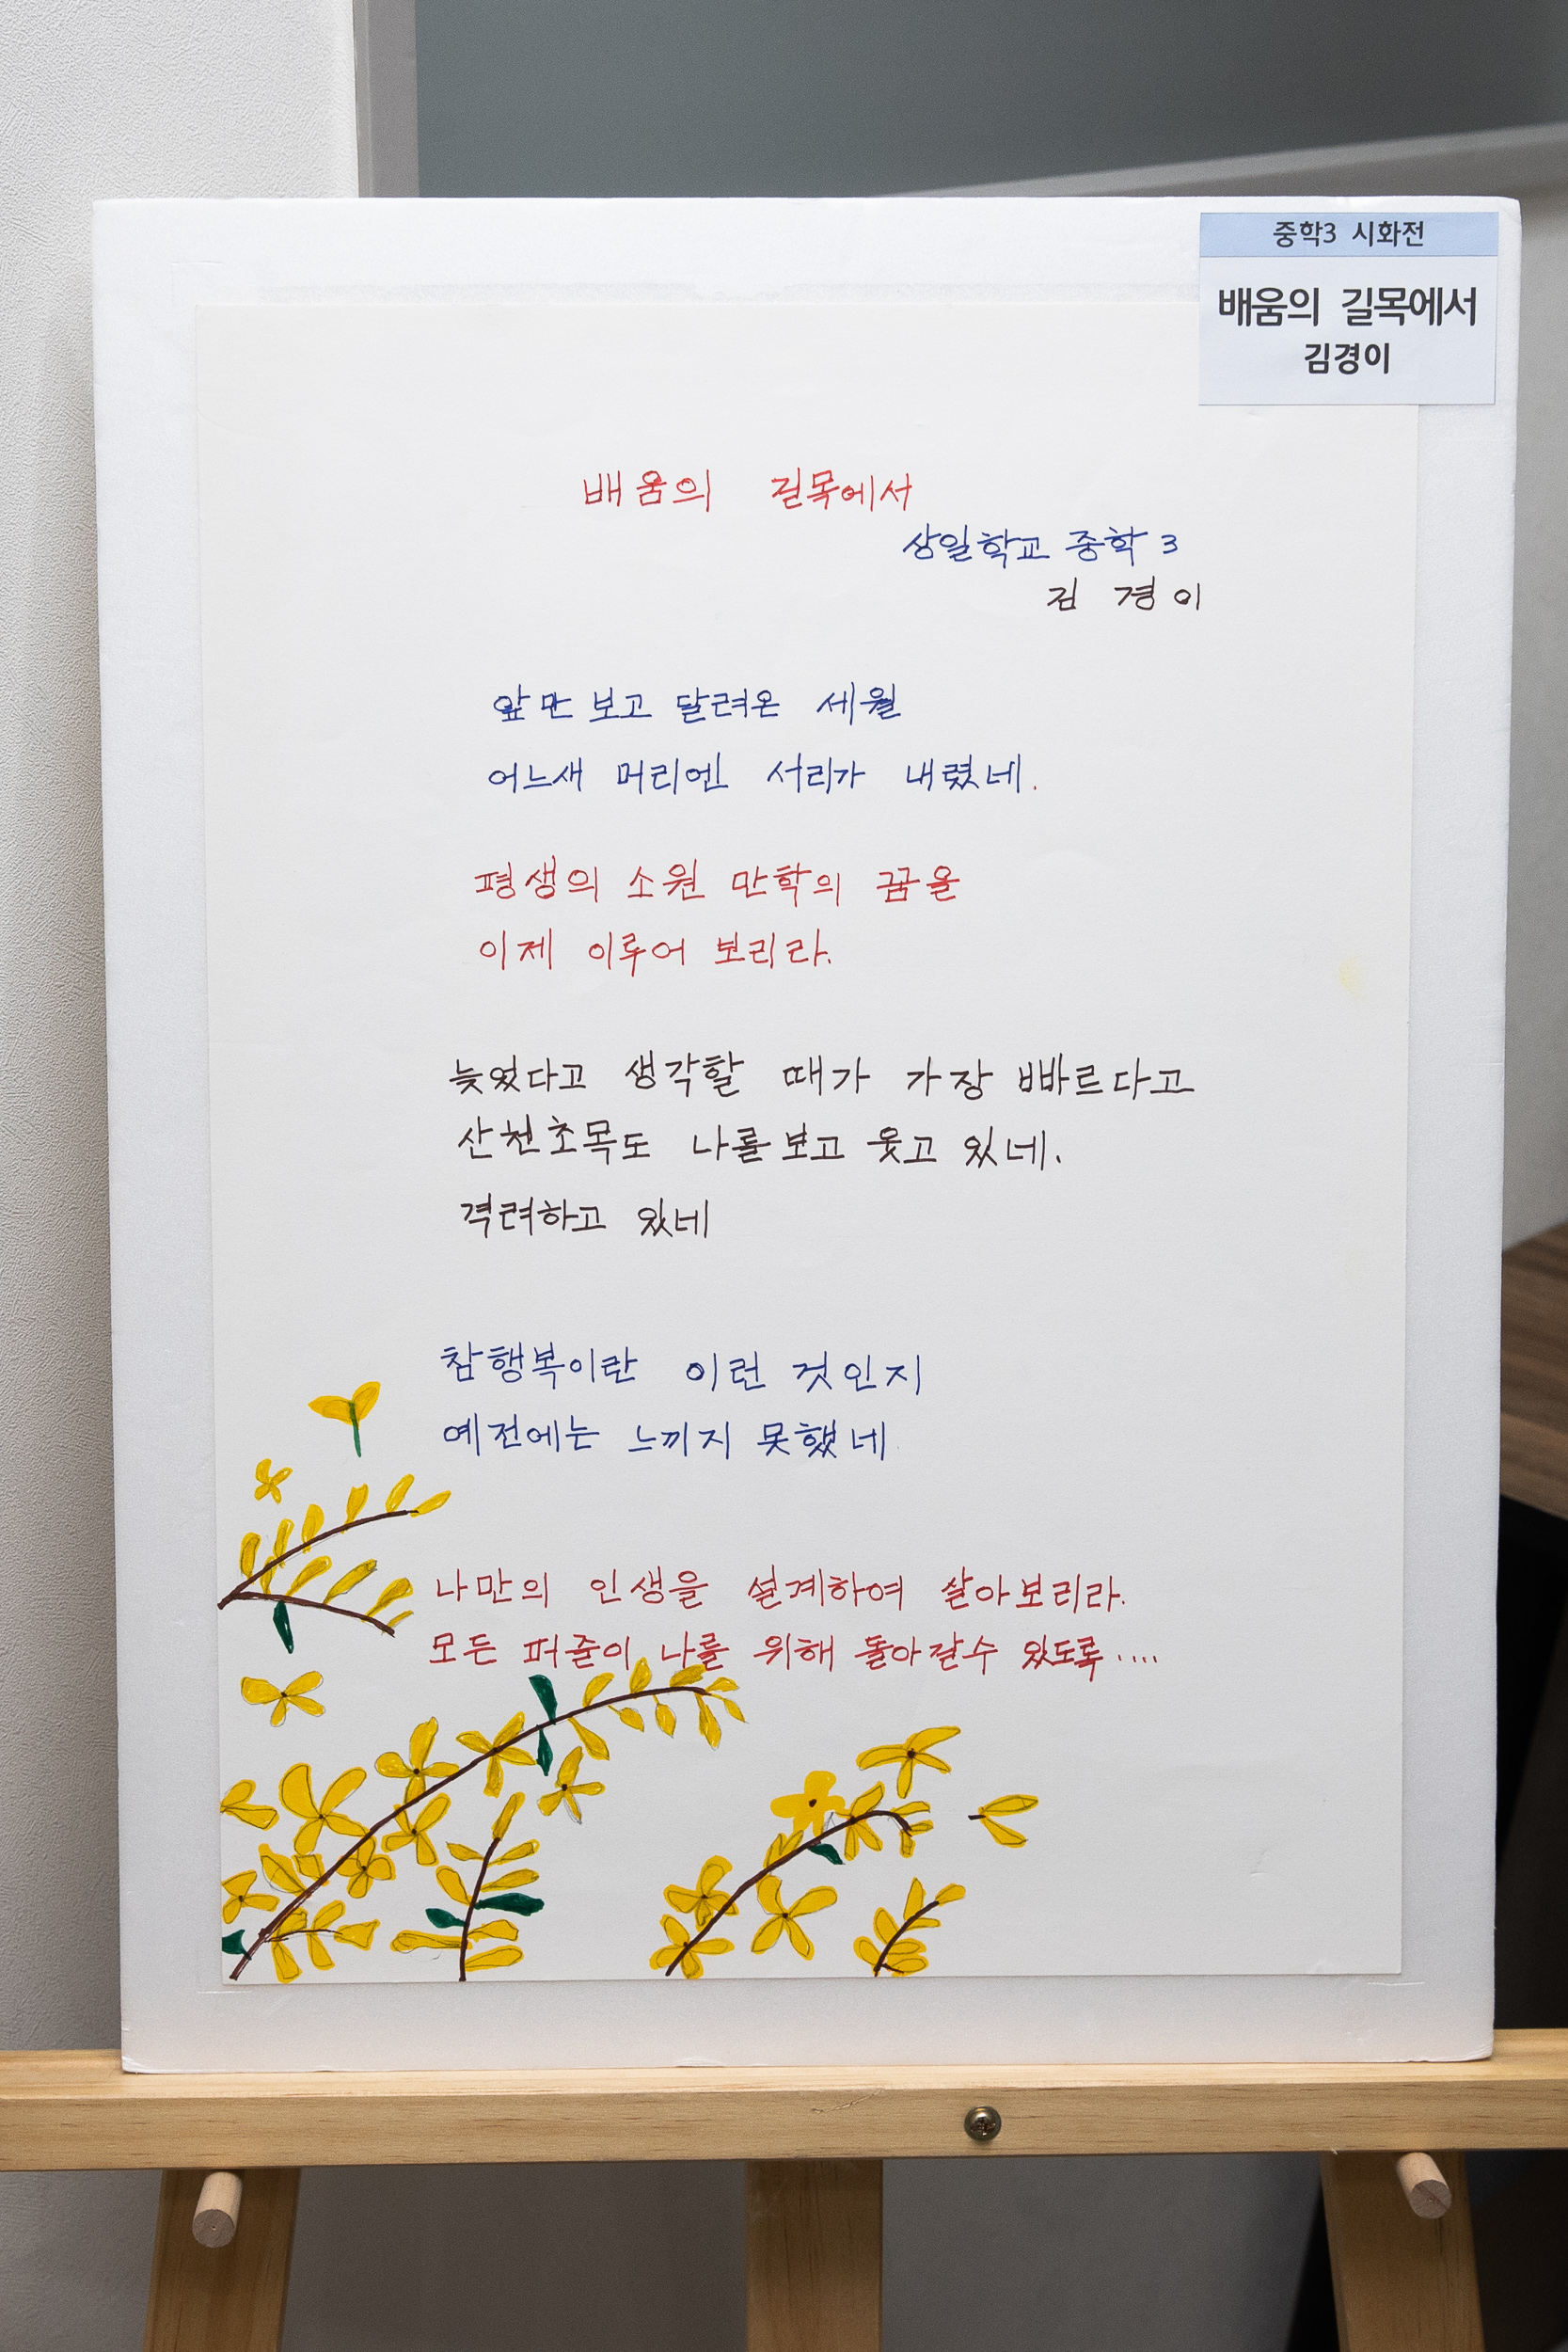 중학3 시화전
배움의 길목에서
김경이
배움의 길목에서
상일학교 중학 3
김 경 이
앞만 보고 달려온 세월
어느새 머리엔 서리가 내렸네.
평생의 소원 만학의 꿈을
이제 이루어 보리라.
늦었다고 생각할 때가 가장 빠르다고
산천초목도 나를 보고 웃고 있네.
격려하고 있네
참행복이란 이런 것인지
예전에는 느끼지 못했네
나만의 인생을 설계하여 살아보리라.
모든 퍼즐이 나를 위해 돌아갈수 있도록....